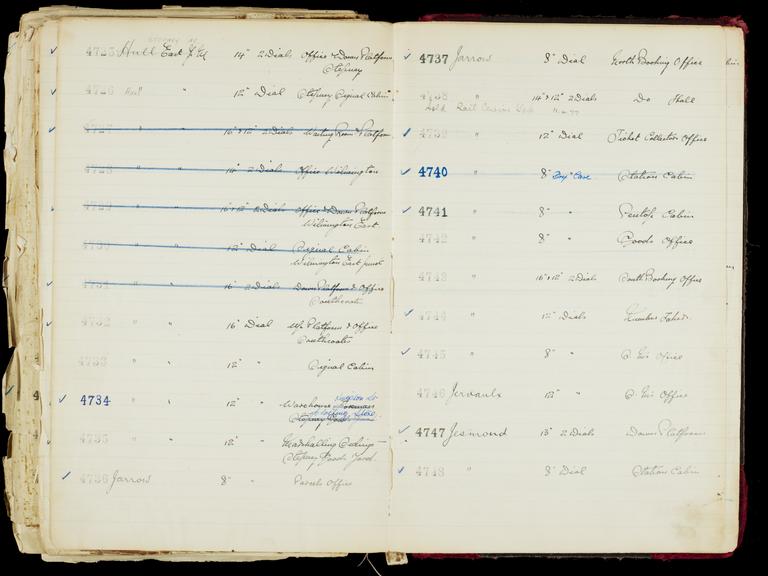 4725 Hull East Gd 14" 2 Dials Office & Down Platform
Stepney
4726 Hull " 12" Dial Stepney Signal Cabin
4727 " " 16" & 12" 2 Dials Waiting Room & Platform
4728 " " 14" 2 Dials Office Wilmington
4729 " " 16" & 12" 2 Dials Office & Down Platform
Wilmington East.
4730 " " 12" Dial Signal Cabin
Wilmington East Junct
4731 " " 16" 2 Dials Down Platform & Office
Southcoates
4732 " " 16" Dial Up Platform & Office
Southcoates
4733 " " 12" " Signal Cabin
4734 " " 12" " Warehouse
4735 " " 12" " Marshalling Sidings
Stepney Goods Yard.
4736 Jarrow 8" " Parcels Office
4737 Jarrow 8" Dial North Booking Office
4738 " 14" & 12" 2 Dials Do Hall
Sold
4739 " 12" Dial Ticket Collectors Office
4740 " 8" Brys Case Station Cabin
4741 " 8" " Cabin
4742 " 8" " Goods Office
4743 " 16" & 12" 2 Dials South Booking Office
4744 " 12" Dials Number Takers
4745 " 8" " Office
4746 Jervaulx 12" " Office
4747 Jesmond 15" 2 Dials Down Platform
4748 " 8" Dial Station Cabin